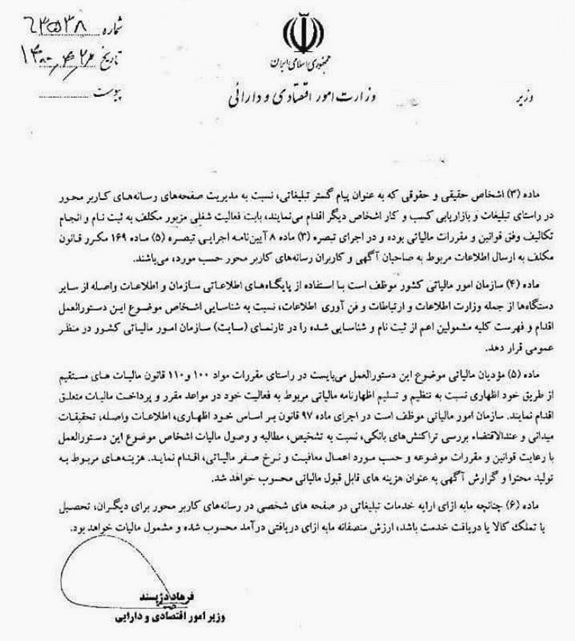 شماره ۶۳۵۳۸
تاریخ
پیوست
جمهوری اسلامی ایران
وزارت امور اقتصادی و دارائی
وزیر
ماده (۳) اشخاص حقیقی و حقوقی که به عنوان پیام گستر تبلیغاتی، نسبت به مدیریت صفحه‌های رسانه‌های کاربر محور
در راستای تبلیغات و بازاریابی کسب و کار اشخاص دیگر اقدام می‌نمایند، بابت فعالیت شغلی مزبور مکلف به ثبت نام و انجام
تکالیف وفق قوانین و مقررات مالیاتی بوده و در اجرای تبصره (۳) ماده ۸ آیین‌نامه اجرایی تبصره (۵) ماده ۱۶۹ مکرر قانون
مکلف به ارسال اطلاعات مربوط به صاحبان آگهی و کاربران رسانه‌های کاربر محور حسب مورد، می‌باشند.
ماده (۴) سازمان امور مالیاتی کشور موظف است با استفاده از پایگاه‌های اطلاعاتی سازمان و اطلاعات واصله از سایر
دستگاه‌ها از جمله وزارت اطلاعات و ارتباطات و فن آوری اطلاعات، نسبت به شناسایی اشخاص موضوع این دستورالعمل
اقدام و فهرست کلیه مشمولین اعم از ثبت نام و شناسایی شده را در تارنمای (سایت) سازمان امور مالیاتی کشور در منظر
عمومی قرار دهد.
ماده (۵) مؤدیان مالیاتی موضوع این دستورالعمل می‌بایست در راستای مقررات مواد ۱۰۰ و ۱۱۰ قانون مالیات های مستقیم
از طریق خود اظهاری نسبت به تنظیم و تسلیم اظهارنامه مالیاتی مربوط به فعالیت خود در مواعد مقرر و پرداخت مالیات متعلق
اقدام نمایند. سازمان امور مالیاتی موظف است در اجرای ماده ۹۷ قانون بر اساس خود اظهاری، اطلاعات واصله، تحقیقات
میدانی و عندالاقتضاء بررسی تراکنش‌های بانکی، نسبت به تشخیص، مطالبه و وصول مالیات اشخاص موضوع این دستورالعمل
با رعایت قوانین و مقررات موضوعه و حسب مورد اعمال معافیت و نرخ صفر مالیاتی، اقدام نماید. هزینه‌های مربوط به
تولید محتوا و گزارش آگهی به عنوان هزینه های قابل قبول مالیاتی محسوب خواهد شد.
ماده (۶) چنانچه مابه ازای ارایه خدمات تبلیغاتی در صفحه های شخصی در رسانه‌های کاربر محور برای دیگران، تحصیل
یا تملک کالا یا دریافت خدمت باشد، ارزش منصفانه مابه ازای دریافتی درآمد محسوب شده و مشمول مالیات خواهد بود.
فرهاد دژپسند
وزیر امور اقتصادی و دارایی